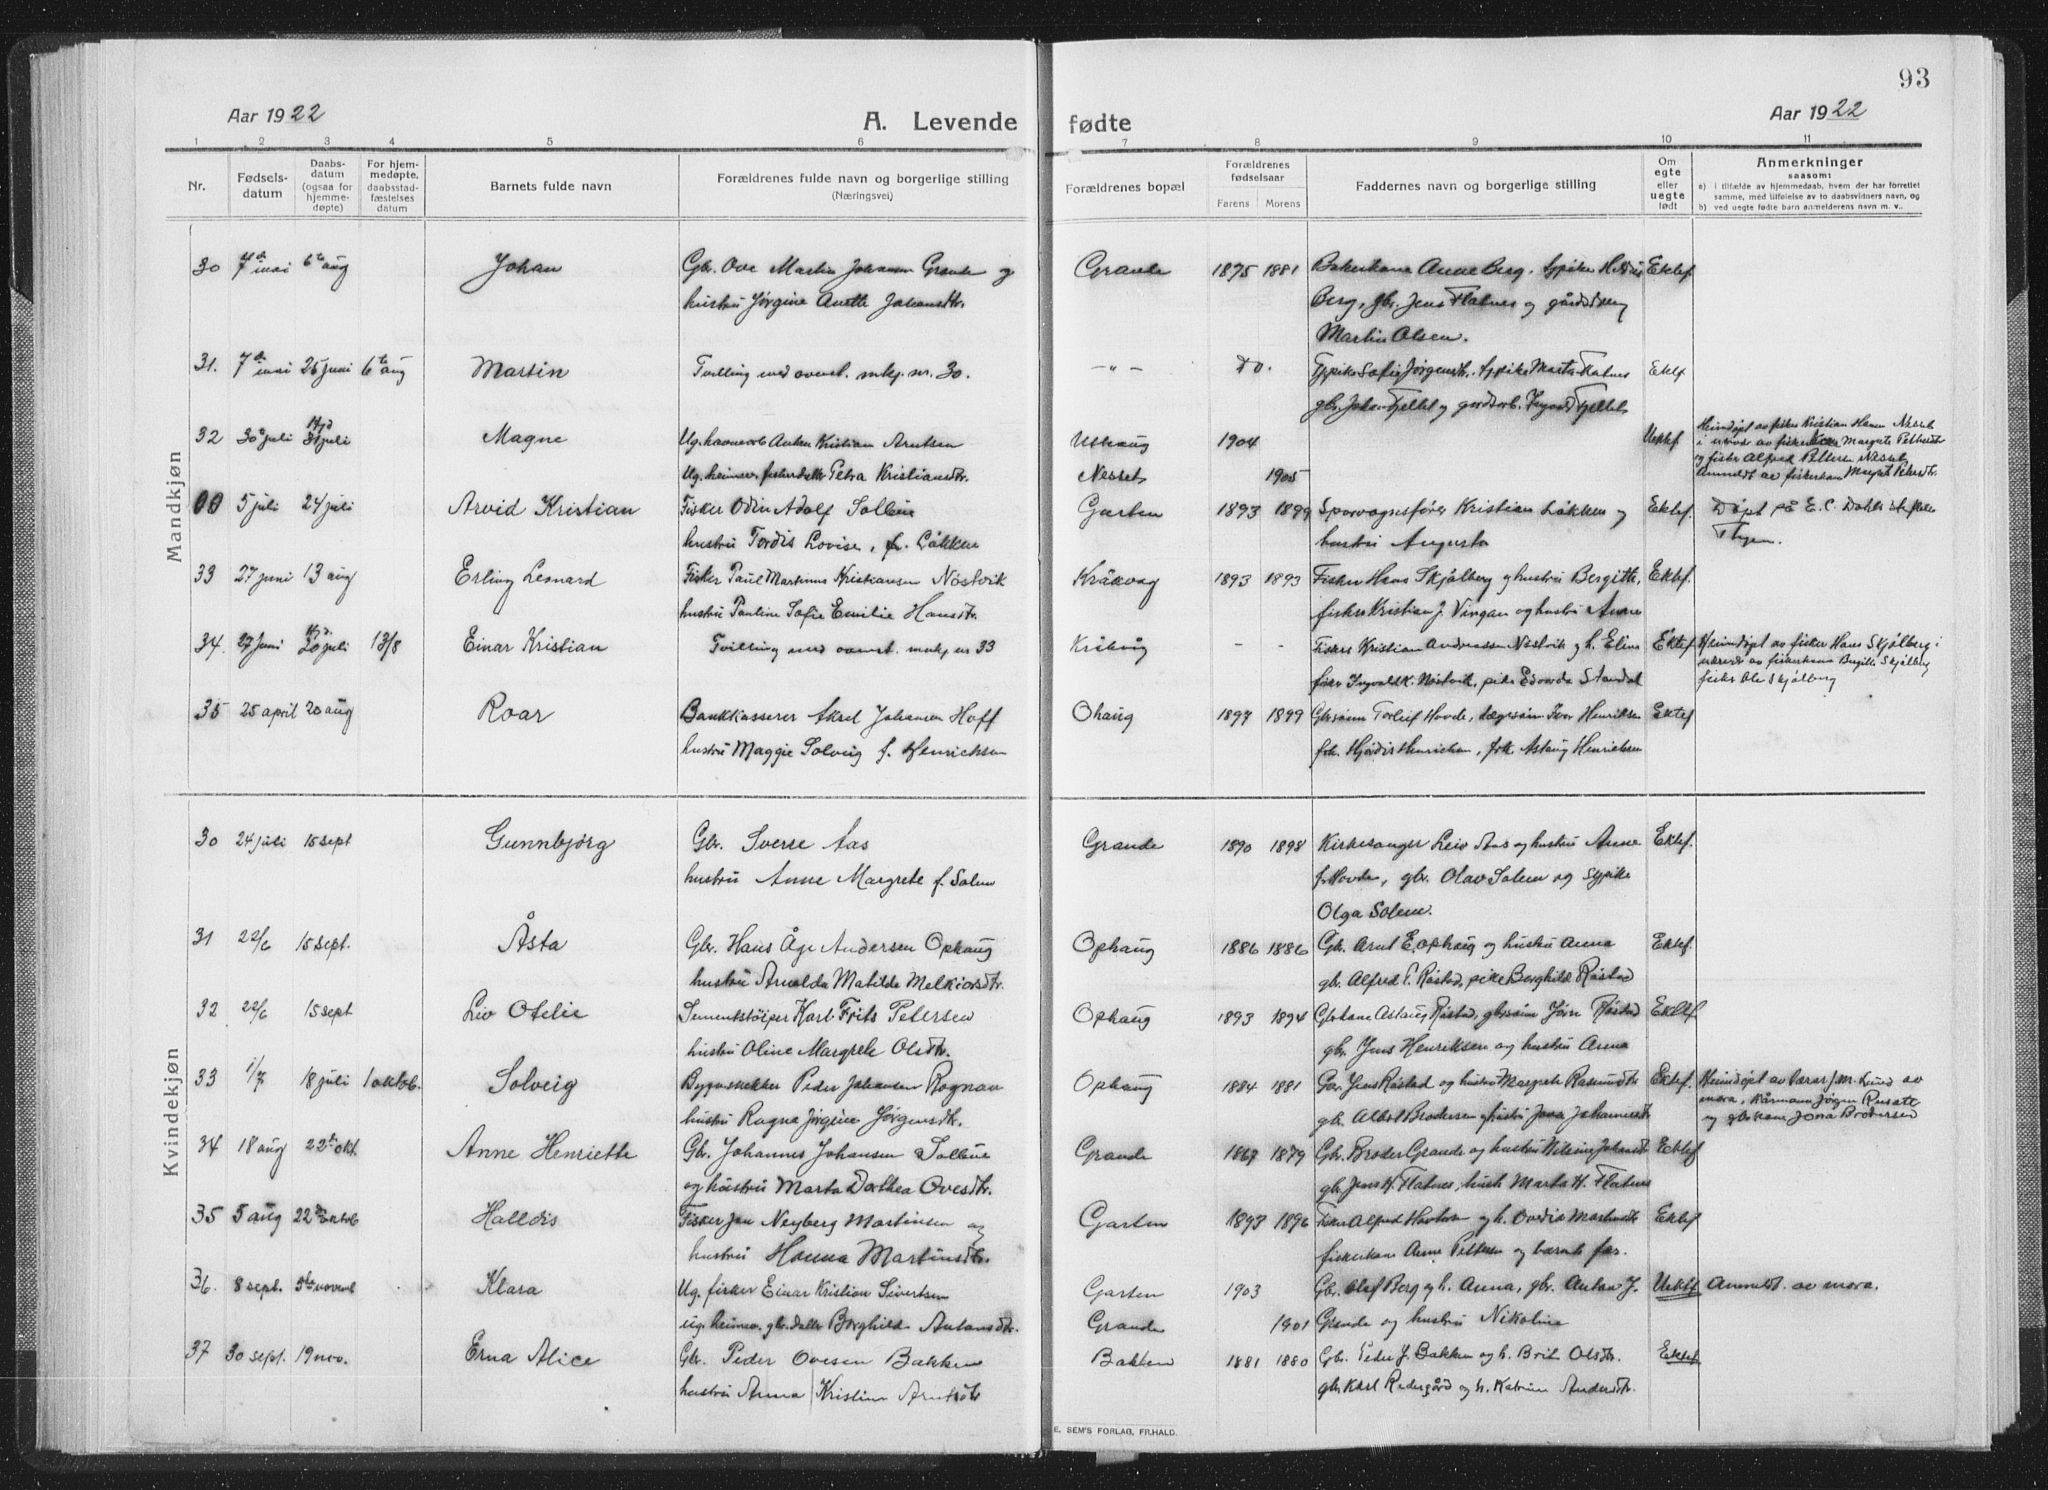 93
Aar 1922
A. Levende fødte
Aar 1922
1 2 3 4 5 6 7 8 9 10 11
Nr.
Fødsels-
datum
Daabs-
datum
(ogsaa for
hjemme-
døpte)
For hjem-
medøpte,
daabsstad-
fæstelses
datum
Barnets fulde navn
Forældrenes fulde navn og borgerlige stilling
(Næringsvei)
Forældrenes bopæl
Forældrenes
fødselsaar
Farens Morens
Faddernes navn og borgerlige stilling
Om
egte
eller
uegte
født
Anmerkninger
saasom:
a) i tilfælde av hjemmedaab, hvem der har forrettet
samme, med tilføielse av to daabsvidners navn, og
b) ved uegte fødte barn anmelderens navn m. v..
Mandkjøn
30 7de mai 6te aug Johan Gbr. Ove Martin Johansen Grande og Grande 1895 1881 Bakerkone Anna Berg, Ektef
hustru Jørgine Anette Johansdtr. Berg, gbr. Jens Flatnes og
Martin Olsen.
31. 7de mai 25 juni 6te aug Martin Tvilling med ovenst. mkj. nr. 30. - " - Do. Sypike Sofie Jørgensdtr. sypike Marta Flatnes Ektf
gbr. Johan Fjeldet og gardarb. Fjeldet
32 30 juli Hjd 31 juli Magne Ug. havnearb Anton Kristian Arntsen Uthaug 1904 Uektef Heimdøpt av fisker Kristian Hansen Nesset
i nærvær av Margrete Pettersdtr
og fisker Alfred Pettersen Nesset
Ug. heimev. fiskerdatter Petra Kristiansdtr. Nesset 1905 Anmeldt av fiskerkone
00 5 juli 24 juli Arvid Kristian Fisker Odin Adolf Sollie Garten 1893 1899 Sporvognsfører Kristian Løkken og Ektef. Døpt på E. C. Dahls stiftelse
hustru Tordis Lovise, f. Løkken hustru Augusta
33 27 juni 13 aug Erling Leonard Fisker Paul Martinus Kristiansen Nøstvik Kråkvåg 1893 1893 Fisker Hans Skjølberg og hustru Bergitte, Ektef.
hustru Pauline Sofie Emilie Hansdtr. fisker Kristian J. Vingan og hustru Anne
34. 27 juni Hjd. 20 juli 13/8 Einar Kristian Tvilling med ovenst. mnkj nr 33 Kråkvåg - - Fisker Kristian Andreassen Nøstvik og h. Elen Ektef Heimdøpt av fisker Hans Skjølberg i
fisker Ingvald K. Nøstvik, pike Edvarda Standal nærvær av fiskerkone Bergitte Skjølberg
fisker Ole Skjølberg
35 25 april 20 aug Roar Bankkasserer Aksel Johansen Hoff Ohaug 1897 1899 Gbrsønn Torleif Hovde, lægesøn Ivar Henriksen Ektef
hustru Maggie Solveig f. Henrichsen frk. Hjørdis Henrichsen, frk. Astaug Henrichsen
Kvindekjøn
30 24 juli 15 sept Gunnbjørg Gbr. Sverre Aas Grande 1890 1898 Kirkesanger Leiv Aas og hustru Anne Ektef.
hustru Anne Margrete f. Solem f. Hovde, gbr. Olav Solem og sypike
Olga Solem.
31 22/6 15 sept. Åsta Gbr. Hans Åge Andersen Ophaug Ophaug 1886 1886 Gbr. Arnt E. Ophaug og hustru Anna Ektef.
hustru Arnolda Matilde Melkiorsdtr. gbr. Alfred T. Røstad, pike Borghild Røstad
32 22/6 15 sept Liv Otelie Sementstøiper Karl Frits Petersen Ophaug 1893 1894 Gbrkone Astaug Røstad, gbrsønn Jørn Røstad Ektef
hustru Oline Margrete Olsdtr. gbr. Jens Henriksen og hustru Anna
33 1/7 18 juli 1 oktob. Solveig Bygnsnekker Peder Johansen Rognan Ophaug 1884 1881 Gbr. Jens Røstad og hustru Margrete Rasmusdtr Ektef. Heimdøpt av
hustru Ragna Jørgine Jørgensdtr. gbr. Albert Brodersen og hustru Jona Johannesdtr mora, Jørgen
og gbrkone Jona Brodersen
34 18 aug 22de okt. Anne Henriette Gbr. Johannes Johansen Sollie Grande 1867 1879 Gbr. Broder Grande og hustru Nilsine Johansdtr Ektef
og hustru Marta Dorthea Ovesdtr. gbr. Jens H. Flatnes, hust. Marta H. Flatnes
35 5 aug 22de oktob Halldis Fisker Jon Neyberg Martinsen og Garten 1893 1896 Fisker Alfred Hovtosen og h. Ovedia Martinsdtr Ektef
hustru Hanna Martinsdtr. fiskerkone Anne Pettersen og barnets far.
36. 8 sept. 5te novemb Klara Ug. fisker Einar Kristian Sivertsen Garten 1903 Gbr. Olaf Berg og h. Anna, gbr. Anton J. Uektef Anmeldt av mora.
ug. heimev. gbr.datter Borghild Antonsdtr. Grande 1901 Grande og hustru Nikoline
37 30 sept. 19 nov. Erna Alice Gbr. Peder Ovesen Bakken Bakken 1881 1880 Gbr. Peder J. Bakken og h. Brit Olsdtr. Ektef
hustru Anna Kristine Arntsdtr gbr. Karl Redergård og h. Katrine Andersdtr.
E. SEM'S FORLAG, FR.HALD.